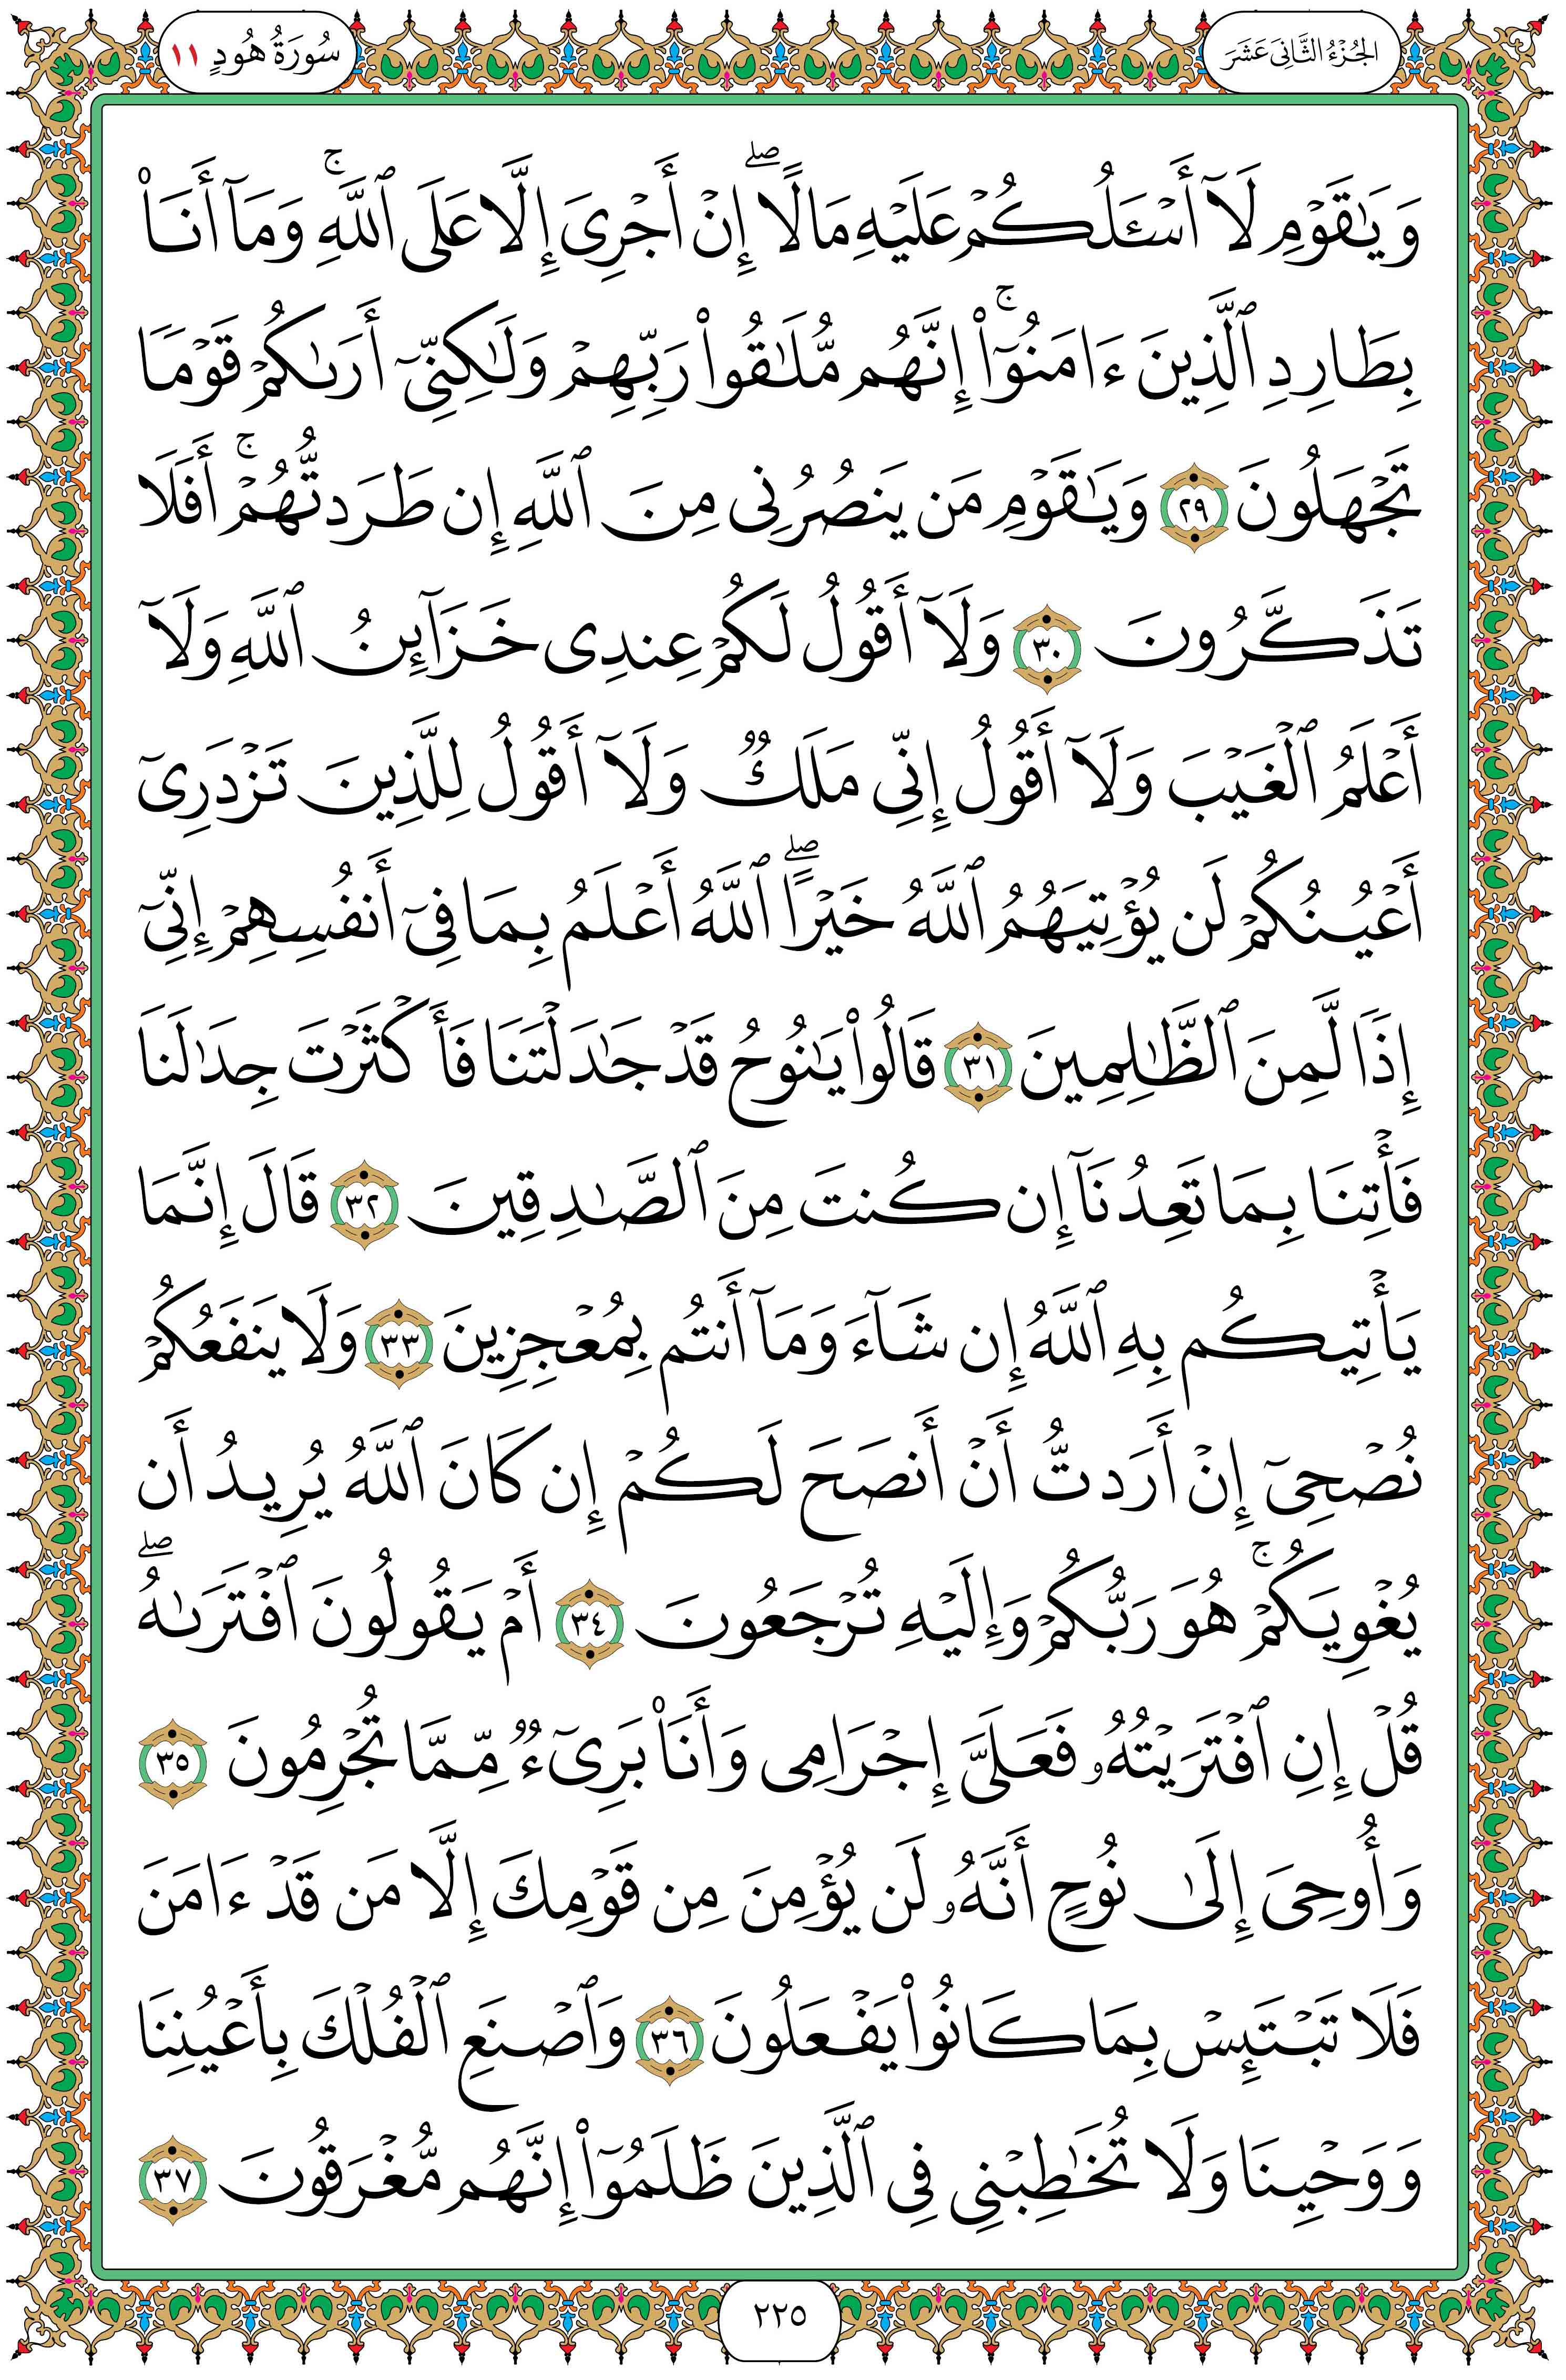 الجُزْءُ الثَّانِىَ عَشَرَ
سُورَةُ هُودٍ ١١
وَيَٰقَوْمِ لَآ أَسْـَٔلُكُمْ عَلَيْهِ مَالًا ۖ إِنْ أَجْرِىَ إِلَّا عَلَى ٱللَّهِ ۚ وَمَآ أَنَا۠
بِطَارِدِ ٱلَّذِينَ ءَامَنُوٓا۟ ۚ إِنَّهُم مُّلَٰقُوا۟ رَبِّهِمْ وَلَٰكِنِّىٓ أَرَىٰكُمْ قَوْمًا
تَجْهَلُونَ ٢٩ وَيَٰقَوْمِ مَن يَنصُرُنِى مِنَ ٱللَّهِ إِن طَرَدتُّهُمْ ۚ أَفَلَا
تَذَكَّرُونَ ٣٠ وَلَآ أَقُولُ لَكُمْ عِندِى خَزَآئِنُ ٱللَّهِ وَلَآ
أَعْلَمُ ٱلْغَيْبَ وَلَآ أَقُولُ إِنِّى مَلَكٌ وَلَآ أَقُولُ لِلَّذِينَ تَزْدَرِىٓ
أَعْيُنُكُمْ لَن يُؤْتِيَهُمُ ٱللَّهُ خَيْرًا ۖ ٱللَّهُ أَعْلَمُ بِمَا فِىٓ أَنفُسِهِمْ إِنِّىٓ
إِذًا لَّمِنَ ٱلظَّٰلِمِينَ ٣١ قَالُوا۟ يَٰنُوحُ قَدْ جَٰدَلْتَنَا فَأَكْثَرْتَ جِدَٰلَنَا
فَأْتِنَا بِمَا تَعِدُنَآ إِن كُنتَ مِنَ ٱلصَّٰدِقِينَ ٣٢ قَالَ إِنَّمَا
يَأْتِيكُم بِهِ ٱللَّهُ إِن شَآءَ وَمَآ أَنتُم بِمُعْجِزِينَ ٣٣ وَلَا يَنفَعُكُمْ
نُصْحِىٓ إِنْ أَرَدتُّ أَنْ أَنصَحَ لَكُمْ إِن كَانَ ٱللَّهُ يُرِيدُ أَن
يُغْوِيَكُمْ ۚ هُوَ رَبُّكُمْ وَإِلَيْهِ تُرْجَعُونَ ٣٤ أَمْ يَقُولُونَ ٱفْتَرَىٰهُ ۖ
قُلْ إِنِ ٱفْتَرَيْتُهُۥ فَعَلَىَّ إِجْرَامِى وَأَنَا۠ بَرِىٓءٌ مِّمَّا تُجْرِمُونَ ٣٥
وَأُوحِىَ إِلَىٰ نُوحٍ أَنَّهُۥ لَن يُؤْمِنَ مِن قَوْمِكَ إِلَّا مَن قَدْ ءَامَنَ
فَلَا تَبْتَئِسْ بِمَا كَانُوا۟ يَفْعَلُونَ ٣٦ وَٱصْنَعِ ٱلْفُلْكَ بِأَعْيُنِنَا
وَوَحْيِنَا وَلَا تُخَٰطِبْنِى فِى ٱلَّذِينَ ظَلَمُوٓا۟ إِنَّهُم مُّغْرَقُونَ ٣٧
٢٢٥